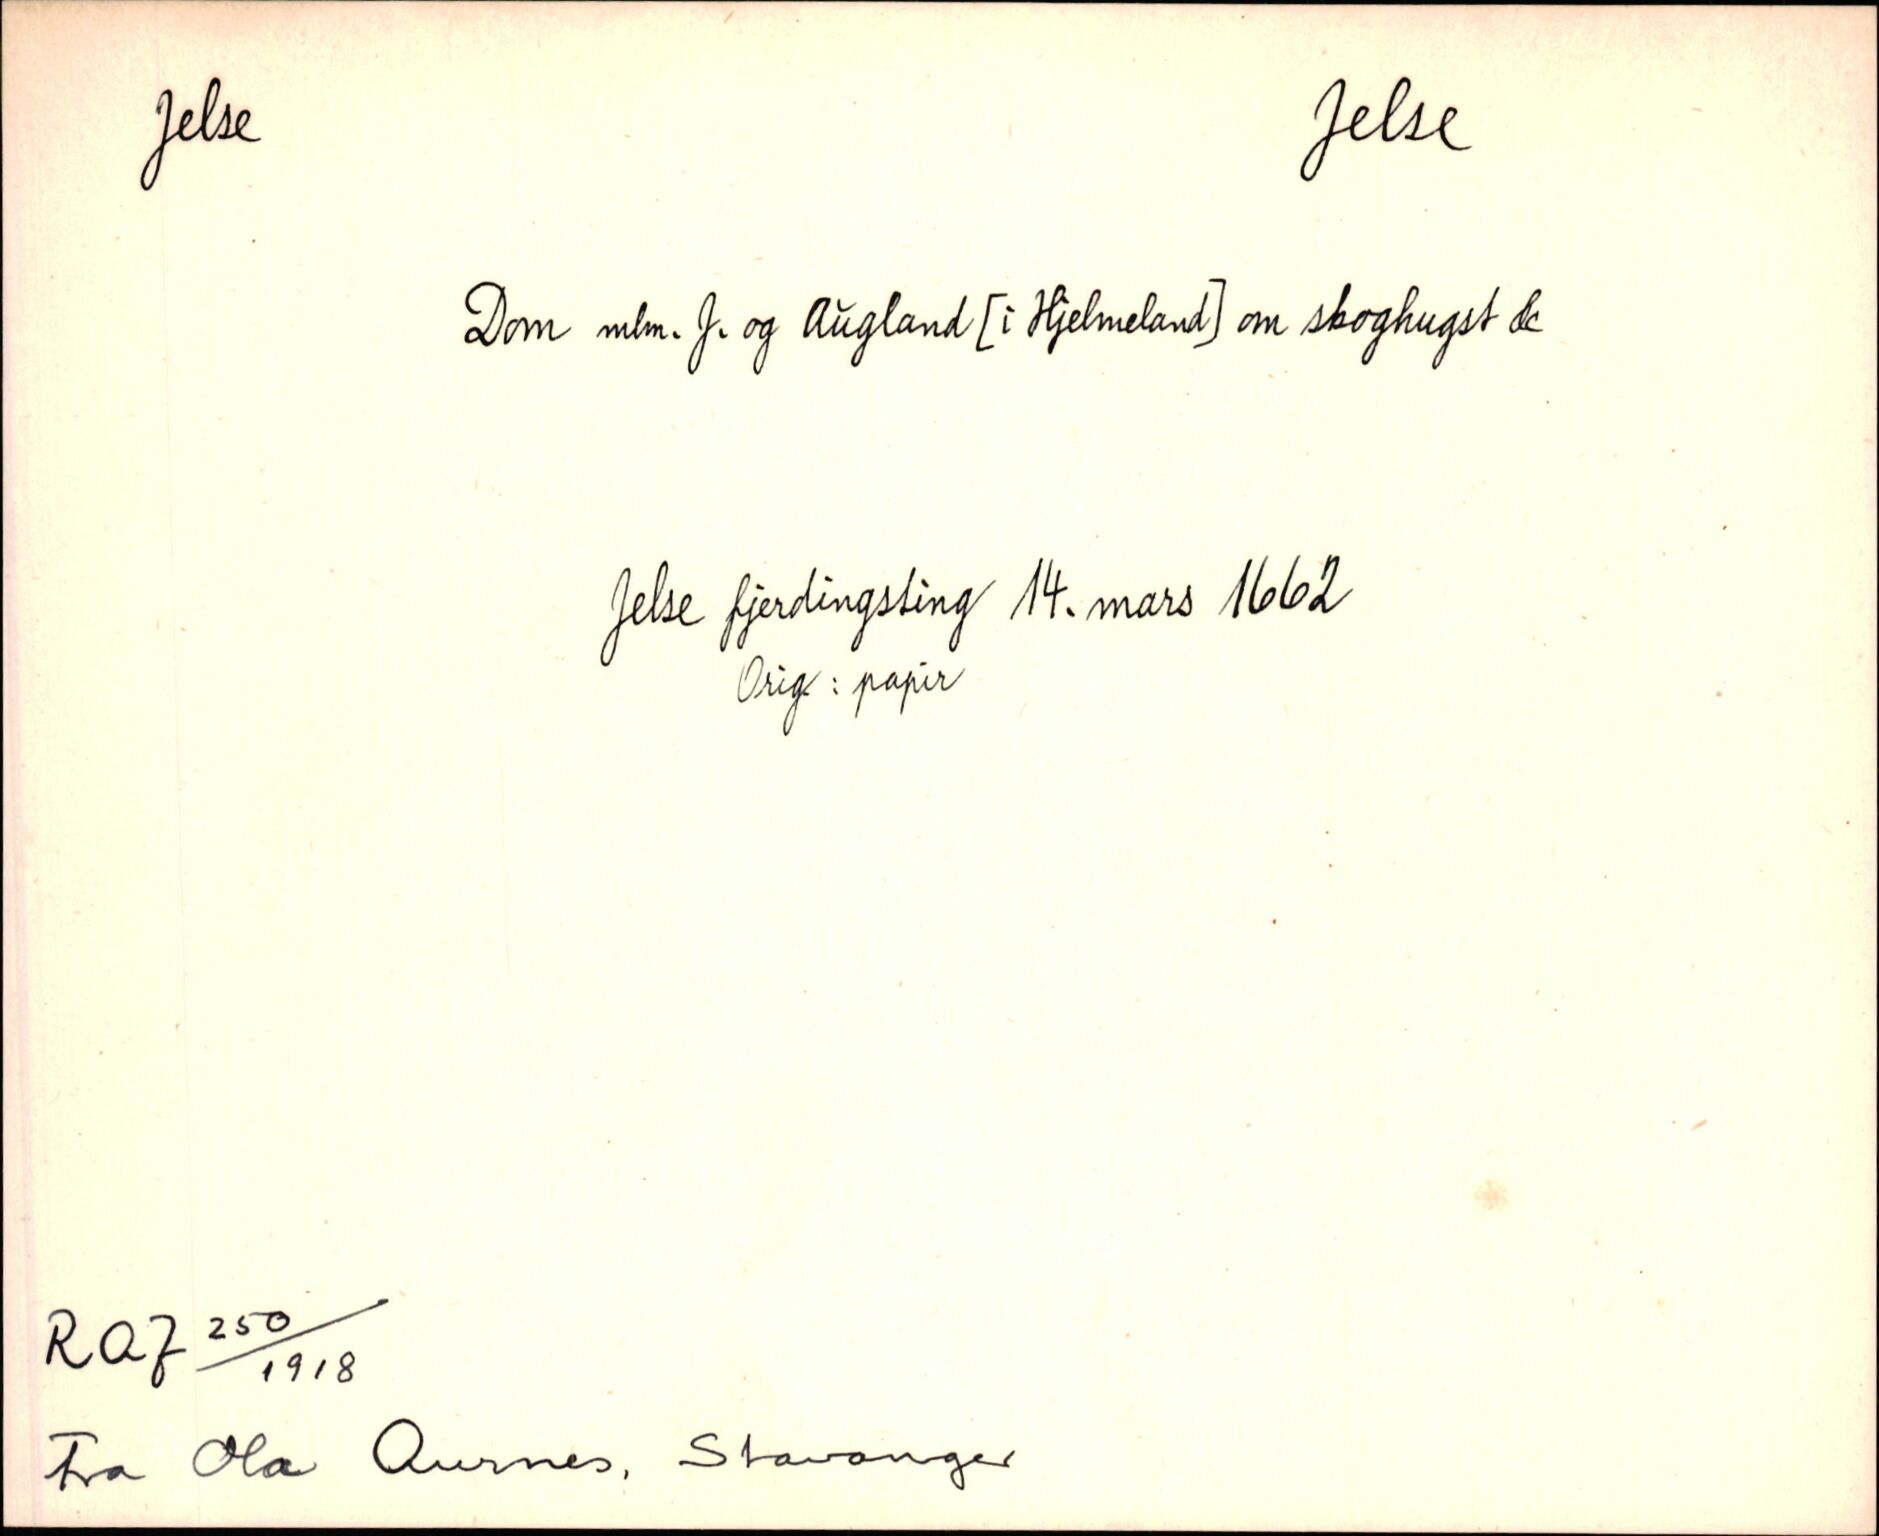 Jelse Jelse
Dom mlm. J. og Augland [i Hjelmeland] om skoghugst &c
Jelse fjerdingsting 14. mars 1662
Orig.: papir
RAJ 250/1918
Fra Ola Aurnes, Stavanger